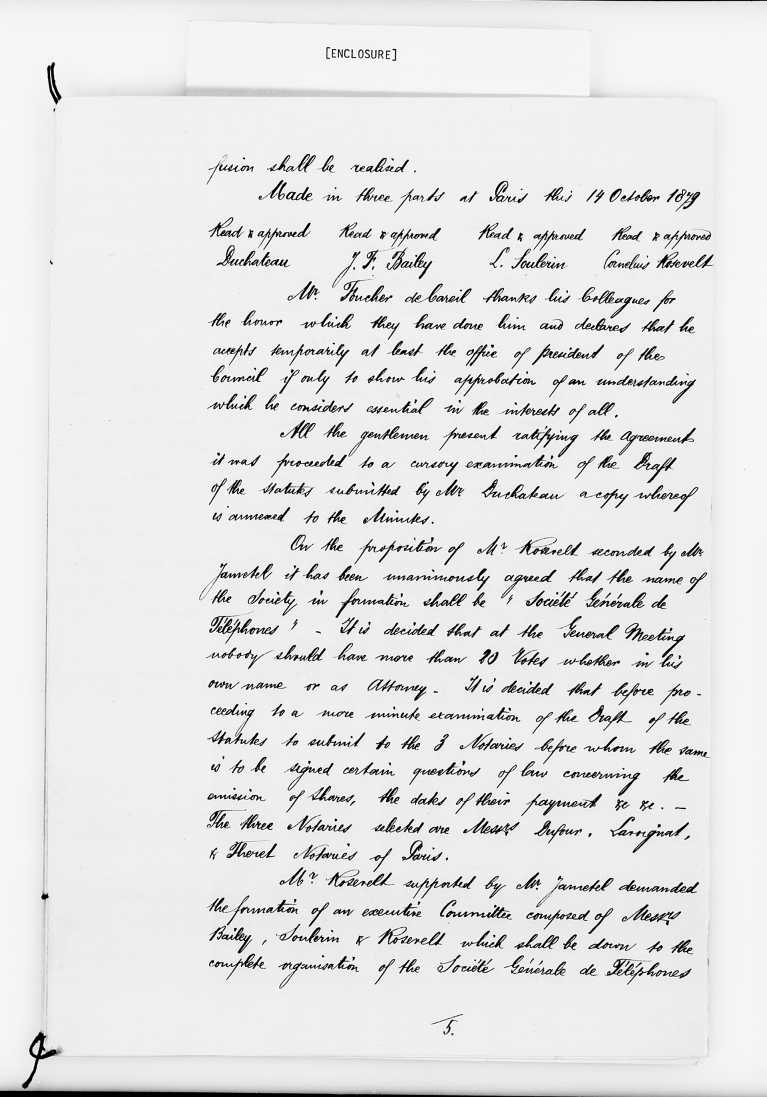 [ENCLOSURE]
fusion shall be realised.
Made in three parts at Paris this 14 October 1879
Read & approved Read & approved Read & approved Read & approved
Duchateau J. F. Bailey L. Soulerin Cornelius Rosevelt
Mr. Foucher de Careil thanks his Colleagues for
the honor which they have done him and declares that he
accepts temporarily at least the office of President of the
Council if only to show his approbation of an understanding
which he considers essential in the interests of all.
All the gentlemen present ratifying the agreement
it was proceeded to a cursory examination of the Draft
of the Statutes submitted by Mr. Duchateau a copy whereof
is annexed to the Minutes.
On the proposition of Mr. Rosevelt seconded by Mr.
Jametel it has been unanimously agreed that the name of
the Society in formation shall be " Société Générale de
Téléphones " - It is decided that at the General Meeting
nobody should have more than 20 Votes whether in his
own name or as Attorney - It is decided that before pro-
ceeding to a more minute examination of the Draft of the
Statutes to submit to the 3 Notaries before whom the same
is to be signed certain questions of law concerning the
emission of Shares, the dates of their payment &c &c. -
The three Notaries selected are Messrs Dufour, Lavoignat,
& Theret Notaries of Paris.
Mr. Rosevelt supported by Mr. Jametel demanded
the formation of an executive Committee composed of Messrs
Bailey, Soulerin & Rosevelt which shall be down to the
complete organisation of the Société Générale de Téléphones
5.